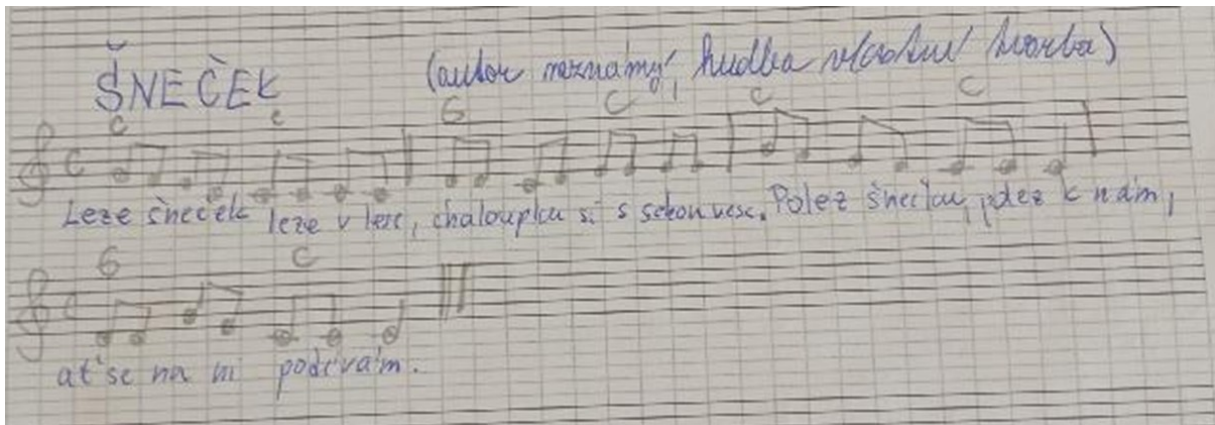 ŠNEČEK (autor neznámý, hudba vlastní tvorba)
C C G C C C
Leze šneček leze v lese, chaloupku si s sebou nese. Polez šnečku, polez k nám,
G C
ať se na ni podívám.